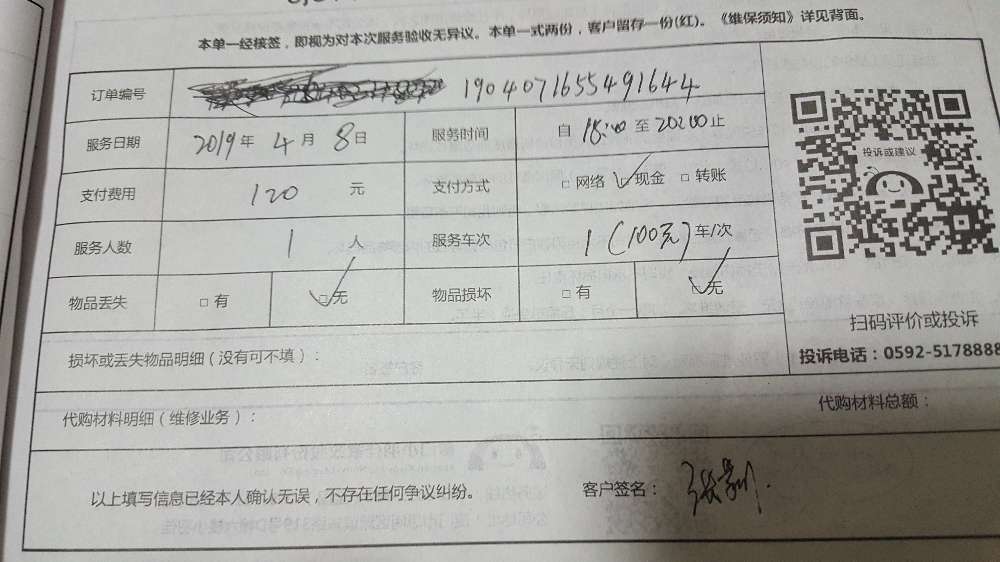 本单一经接签，即视为对本次服务验收无异议。本单一式两份，客户留存一份(红)。《维保须知》详见背面。
订单编号 1904071655491644
服务日期 2019年 4月 8日 服务时间 自 18:00 至 20:00 止
支付费用 120 元 支付方式 □网络 ☑现金 □转账
服务人数 1 人 服务车次 1 (100元) 车/次
物品丢失 □有 ☑无 物品损坏 □有 ☑无
投诉或建议
扫码评价或投诉
投诉电话：0592-5178888
损坏或丢失物品明细（没有可不填）：
代购材料明细（维修业务）： 代购材料总额：
以上填写信息已经本人确认无误，不存在任何争议纠纷。 客户签名：